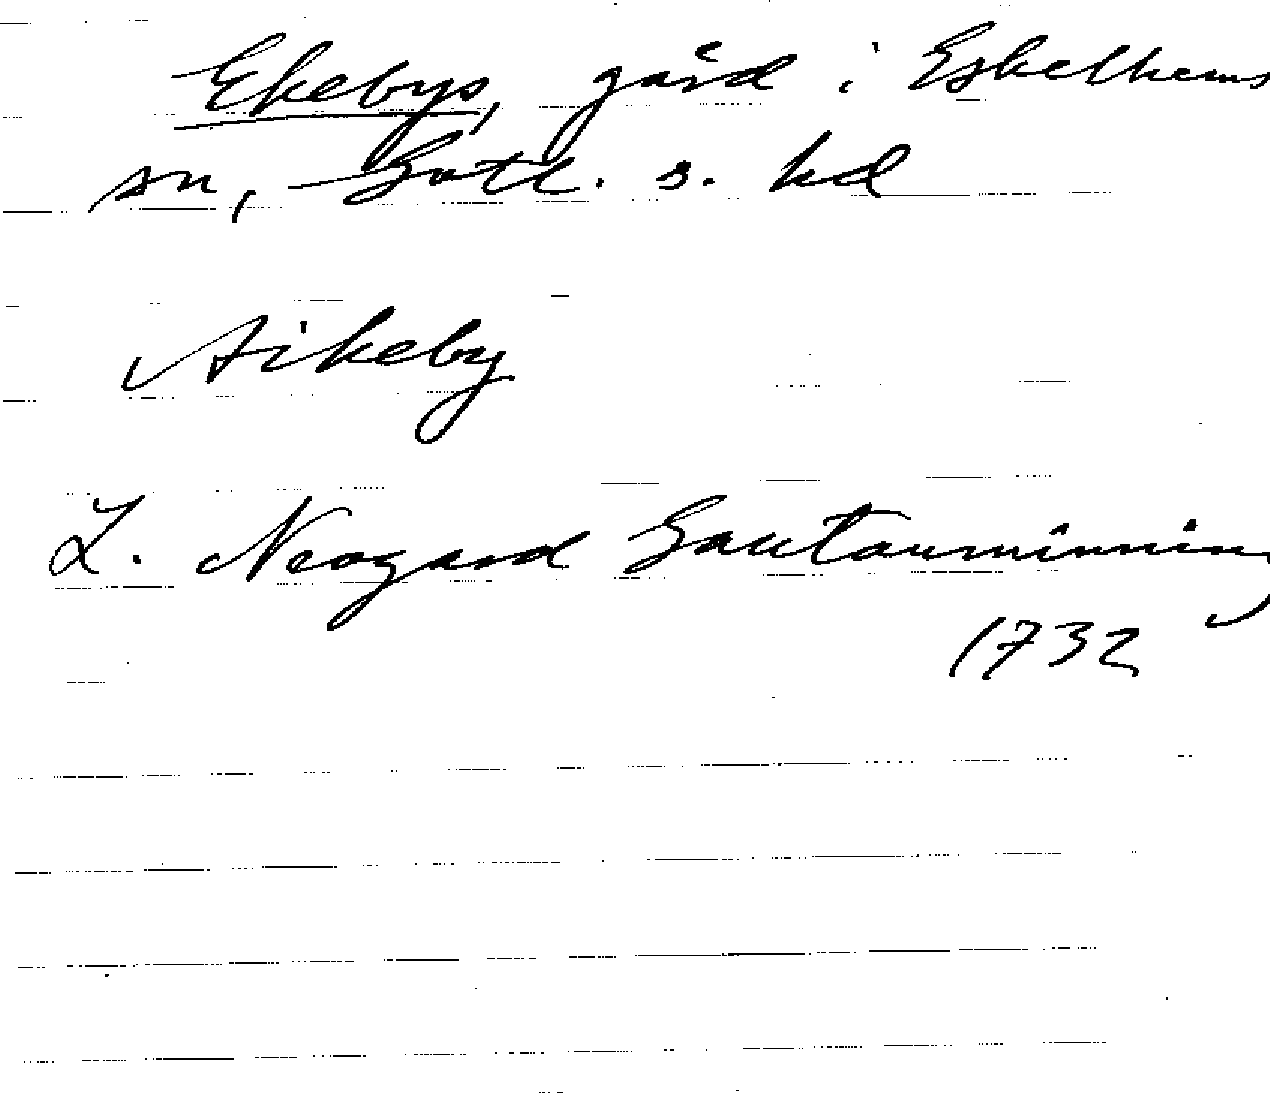 Ekebys, gård i Eskelhems
sn, Gotl. s. hd
Aikeby
L. Neogard Gautauminning
1732